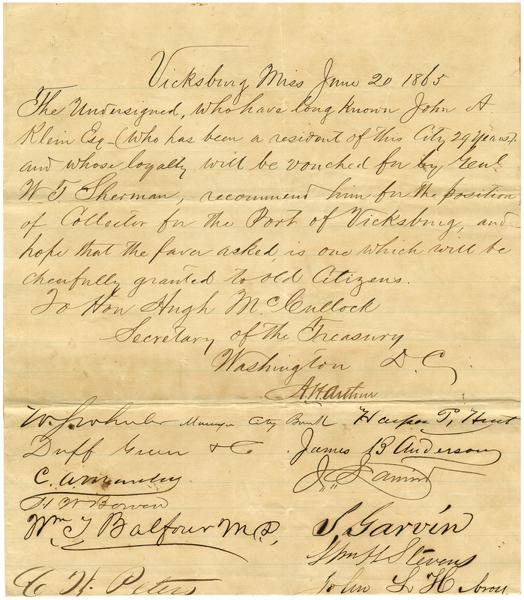 Vicksburg Miss June 20 1865
The Undersigned, who have long known John A
Klein Esq - (who has been a resident of this City 29 years).
and whose loyalty will be vouched for by Genl
W T Sherman, recommend him for the position
of Collector for the Port of Vicksburg, and
hope that the favor asked, is one which will be
cheerfully granted to old Citizens.
To Hon Hugh McCullock
Secretary of the Treasury
Washington D. C.
A H Arthur
Manager City Bank
Harper P. Hunt
Duff Green & Co.
James B Anderson
H W Bowen
Wm T Balfour M D,
S Garvin
Stevens
C W Peters
John L H